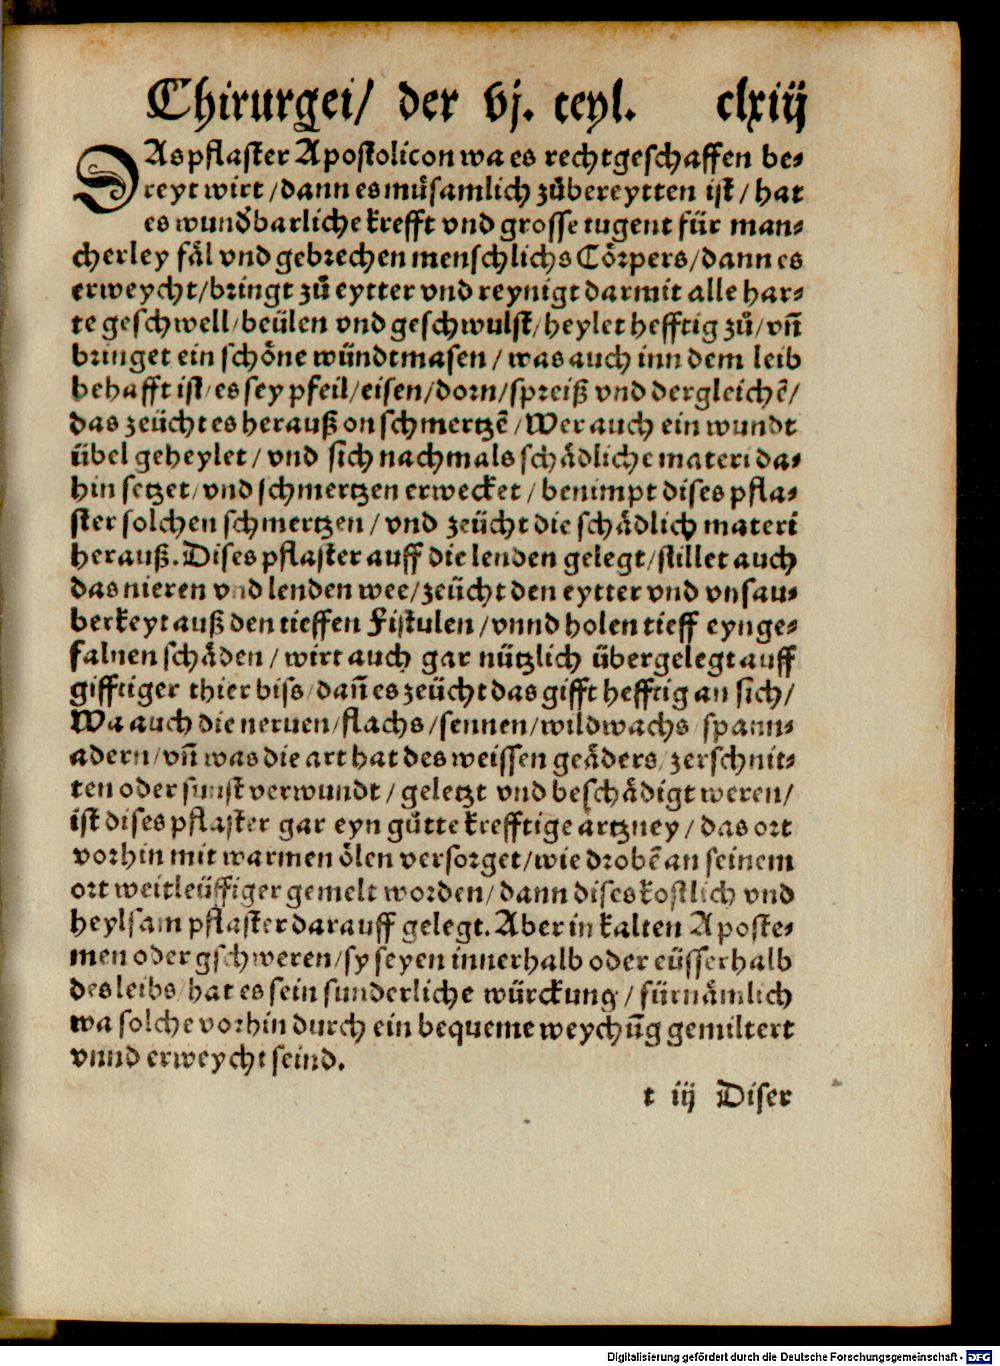 Chirurgei/ der vj. teyl. clxiij
DAs pflaster Apostolicon wa es rechtgeschaffen be-
reyt wirt/dann es mu̇samlich zů bereytten ist/hat
es wundbarliche krefft vnd grosse tugent für man-
cherley fäl vnd gebrechen menschlichs Cörpers/dann es
erweycht/bringt zů eytter vnd reynigt darmit alle har-
te geschwell/beülen vnd geschwulst/heylet hefftig zů/vñ
bringet ein schöne wündtmasen/was auch inn dem leib
behafft ist/es sey pfeil/eisen/dorn/spreiß vnd dergleichẽ/
das zeücht es herauß on schmertzẽ/Wer auch ein wundt
übel geheylet/vnd sich nachmals schädliche materi da-
hin setzet/vnd schmertzen erwecket/benimpt dises pfla-
ster solchen schmertzen/vnd zeücht die schädlich materi
herauß. Dises pflaster auff die lenden gelegt/stillet auch
das nieren vnd lenden wee/zeücht den eytter vnd vnsau-
berkeyt auß den tieffen Fistulen/vnnd holen tieff eynge-
falnen schäden/wirt auch gar nützlich übergelegt auff
gifftiger thier biss/dañ es zeücht das gifft hefftig an sich/
Wa auch die neruen/flachs/sennen/wildwachs/spann-
adern/vñ was die art hat des weissen geäders/zerschnit-
ten oder sunst verwundt/geletzt vnd beschädigt weren/
ist dises pflaster gar eyn gůtte krefftige artzney/das ort
vorhin mit warmen ölen versorget/wie drobẽ an seinem
ort weitleüffiger gemelt worden/dann dises kostlich vnd
heylsam pflaster darauff gelegt. Aber in kalten Aposte-
men oder gschweren/sy seyen innerhalb oder eüsserhalb
des leibs/hat es sein sunderliche würckung/fürnämlich
wa solche vorhin durch ein bequeme weychũg gemiltert
vnnd erweycht seind.
t iij Diser
Digitalisierung gefördert durch die Deutsche Forschungsgemeinschaft - DFG